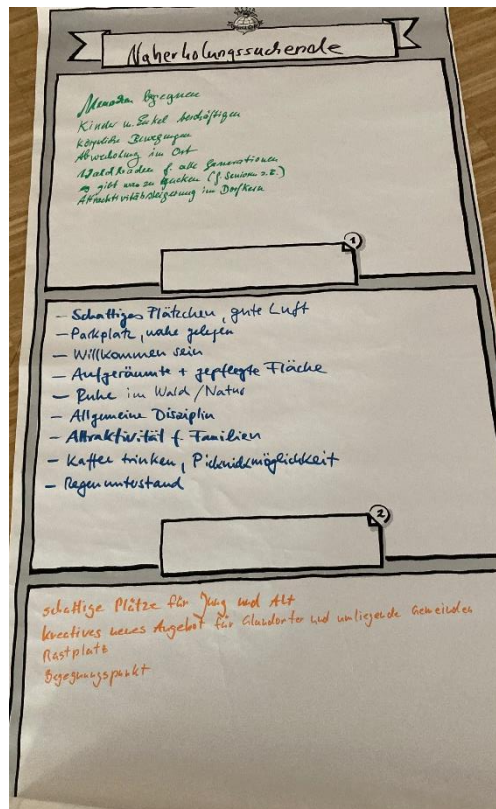 Naherholungssuchende
Menschen begegnen
Kinder u. Enkel beschäftigen
körperliche Bewegungen
Abwechslung im Ort
Waldbaden f. alle Generationen
es gibt was zu gucken (f. Senioren z.B.)
Attraktivitätssteigerung im Dorfkern
1
- Schattiges Plätzchen, gute Luft
- Parkplatz, nahe gelegen
- Willkommen sein
- Aufgeräumte + gepflegte Fläche
- Ruhe im Wald / Natur
- Allgemeine Disziplin
- Attraktivität f. Familien
- Kaffee trinken, Picknickmöglichkeit
- Regenunterstand
2
schattige Plätze für Jung und Alt
kreatives neues Angebot für Glandorfer und umliegende Gemeinden
Rastplatz
Begegnungspunkt